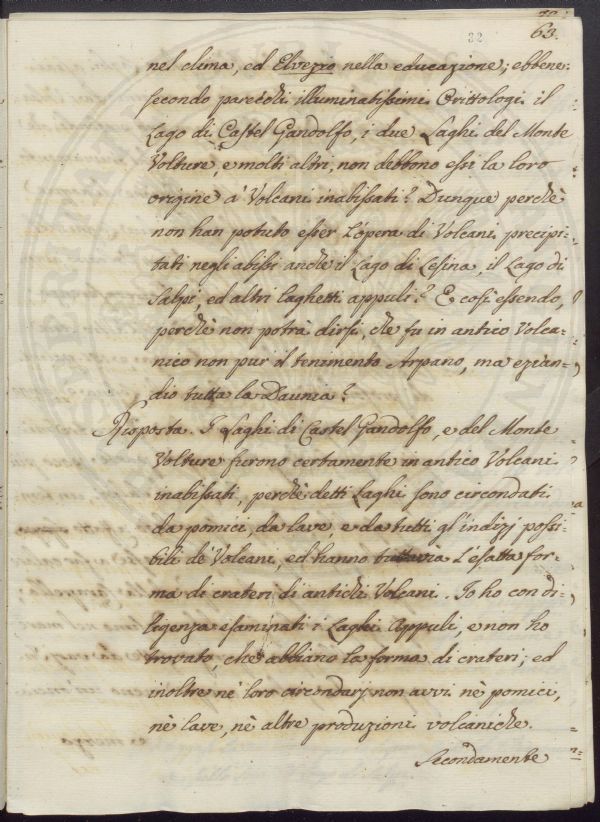 63.
32
nel clima, ed Elvezio nella educazione; ebbene:
secondo parecchi illuminatissimi Orittologi il
Lago di Castel Gandolfo, i due Laghi del Monte
Volture, e molti altri, non debbono essi la loro
origine a' Volcani inabissati? Dunque perchè
non han potuto esser l'opera di Volcani precipi-
tati negli abissi anche il Lago di Lesina, il Lago di
Salpi, ed altri laghetti appuli? E così essendo,
perchè non potrà dirsi, che fu in antico Volca-
nico non pur il tenimento Arpano, ma ezian-
dio tutta la Daunia?
Risposta. I Laghi di Castel Gandolfo, e del Monte
Volture furono certamente in antico Volcani
inabissati, perchè detti Laghi sono circondati
da pomici, da lave, e da tutti gl'indizj possi-
bili de' Volcani, ed hanno tuttavia l'esatta for-
ma di crateri di antichi Volcani. Io ho con di-
ligenza esaminati i Laghi Appuli, e non ho
trovato, che abbiano la forma di crateri; ed
inoltre ne' loro circondarj non avvi nè pomici,
nè lave, nè altre produzioni volcaniche.
Secondamente